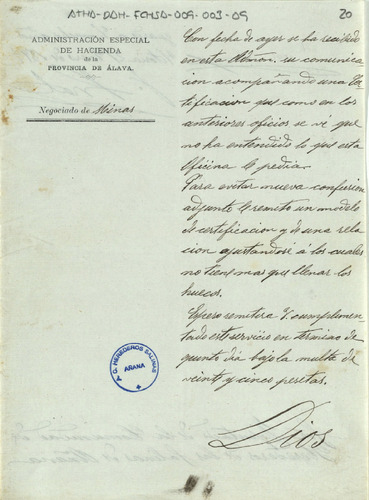 ATHA-DDH-FCHSA-009-003-09
20
ADMINISTRACIÓN ESPECIAL
DE HACIENDA
de la
PROVINCIA DE ÁLAVA.
Negociado de Minas
Con fecha de ayer se ha recibido
en esta Admon. su comunica
cacion acompañando una Cer
tificacion que como en los
anteriores oficios se vé que
no ha entendido lo que esta
Oficina le pedia.
Para evitar nueva confusion
adjunto le remito un modelo
de certificacion y de una rela
cion ajustandose á los cuales
no tiene mas que llenar los
huecos.
Espero remitirá V. cumplimen
tado este servicio en término de
quinto dia bajo la multa de
veinte y cinco pesetas.
Dios
HEREDEROS SALINAS
AÑANA